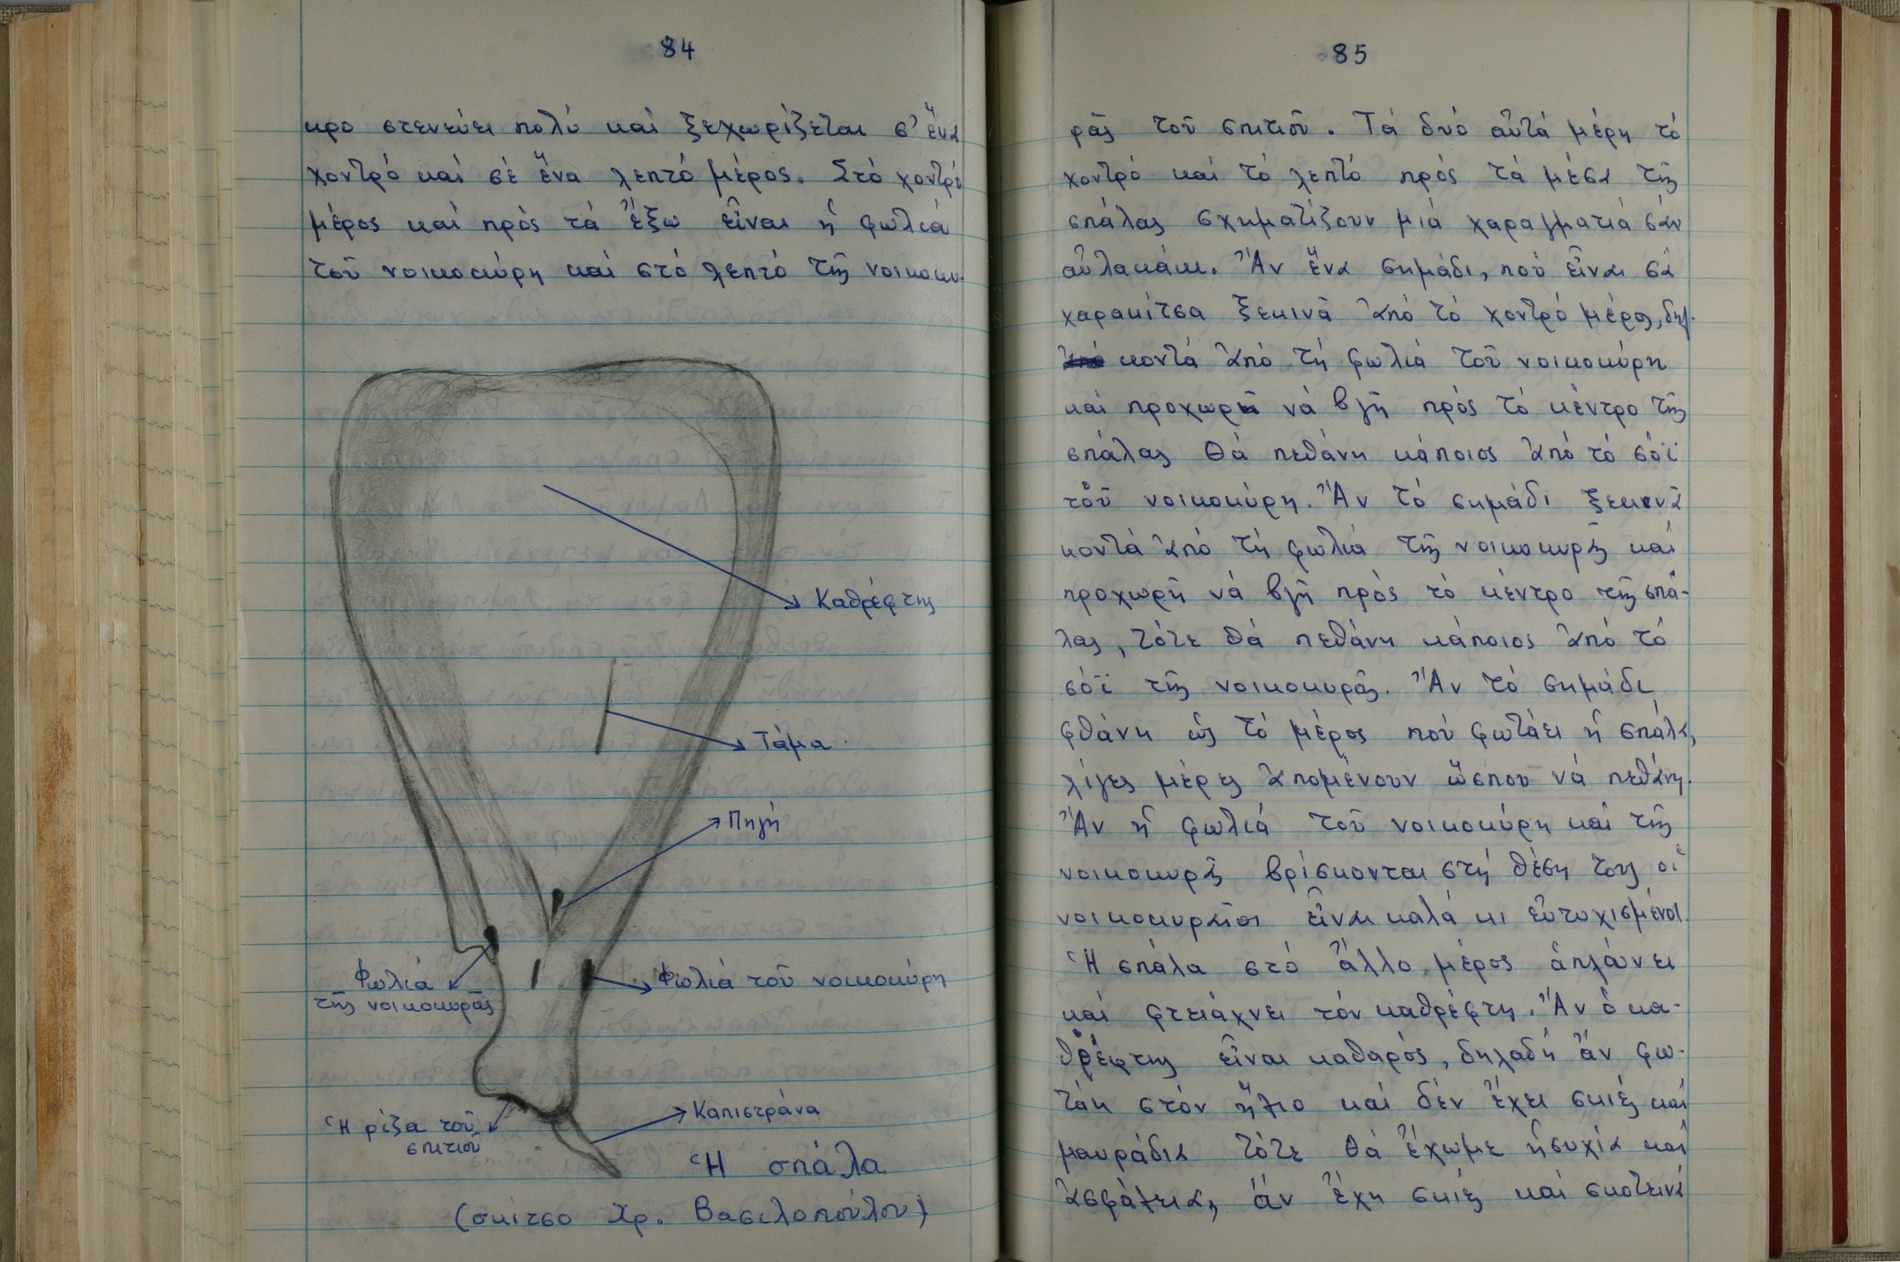 84
κρο στενεύει πολύ καί ξεχωρίζεται σ' ἕνα
χοντρό καί σέ ἕνα λεπτό μέρος. Στό χοντρό
μέρος καί πρός τά ἔξω εἶναι ἡ φωλιά
τοῦ νοικοκύρη καί στό λεπτό τῆς νοικοκυ-
Καθρέφτης
Τάμα
Πηγή
Φωλιά
τῆς νοικοκυρᾶς
Φωλιά τοῦ νοικοκύρη
Ἡ ρίζα τοῦ
σπιτιοῦ
Καπιστράνα
Ἡ σπάλα
(σκίτσο Χρ. Βασιλοπούλου)
85
ρᾶς τοῦ σπιτιοῦ. Τά δυό αὐτά μέρη τό
χοντρό καί τό λεπτό πρός τά μέσα τῆς
σπάλας σχηματίζουν μιά χαραγματιά σάν
αὐλακάκι. Ἄν ἕνα σημάδι, πού εἶναι σά
χαρακίτσα ξεκινᾶ ἀπό τό χοντρό μέρος, δηλ.
κοντά ἀπό τή φωλιά τοῦ νοικοκύρη
καί προχωρῆ νά βγῆ πρός τό κέντρο τῆς
σπάλας θά πεθάνη κάποιος ἀπό τό σόϊ
τοῦ νοικοκύρη. Ἄν τό σημάδι ξεκινᾶ
κοντά ἀπό τή φωλιά τῆς νοικοκυρᾶς καί
προχωρῆ νά βγῆ πρός τό κέντρο τῆς σπά-
λας, τότε θά πεθάνη κάποιος ἀπό τό
σόϊ τῆς νοικοκυρᾶς. Ἄν τό σημάδι
φθάνη ὡς τό μέρος πού φωτάει ἡ σπάλα,
λίγες μέρες ἀπομένουν ὥσπου νά πεθάνη.
Ἄν ἡ φωλιά τοῦ νοικοκύρη καί τῆς
νοικοκυρᾶς βρίσκονται στή θέση τους οἱ
νοικοκυραῖοι εἶναι καλά κι εὐτυχισμένοι.
Ἡ σπάλα στό ἄλλο μέρος ἁπλώνει
καί φτειάχνει τόν καθρέφτη. Ἄν ὁ κα-
θρέφτης εἶναι καθαρός, δηλαδή ἄν φω-
τάη στόν ἥλιο καί δέν ἔχει σκιές καί
μαυράδια τότε θά ἔχωμε ἡσυχία καί
ἀσφάλεια, ἄν ἔχη σκιές καί σκοτεινά